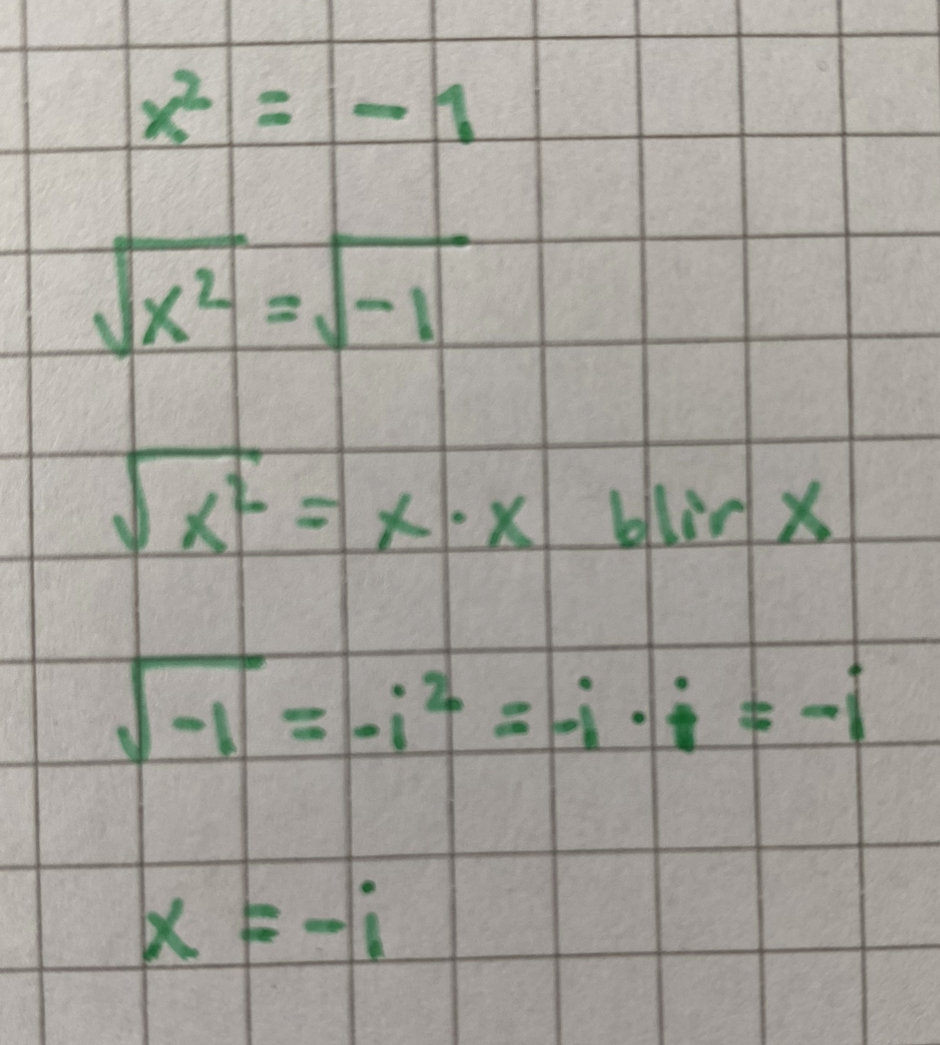 x² = - 1
√x² = √-1
√x² = x · x blir x
√-1 = -i² = -i · i = -i
x = -i